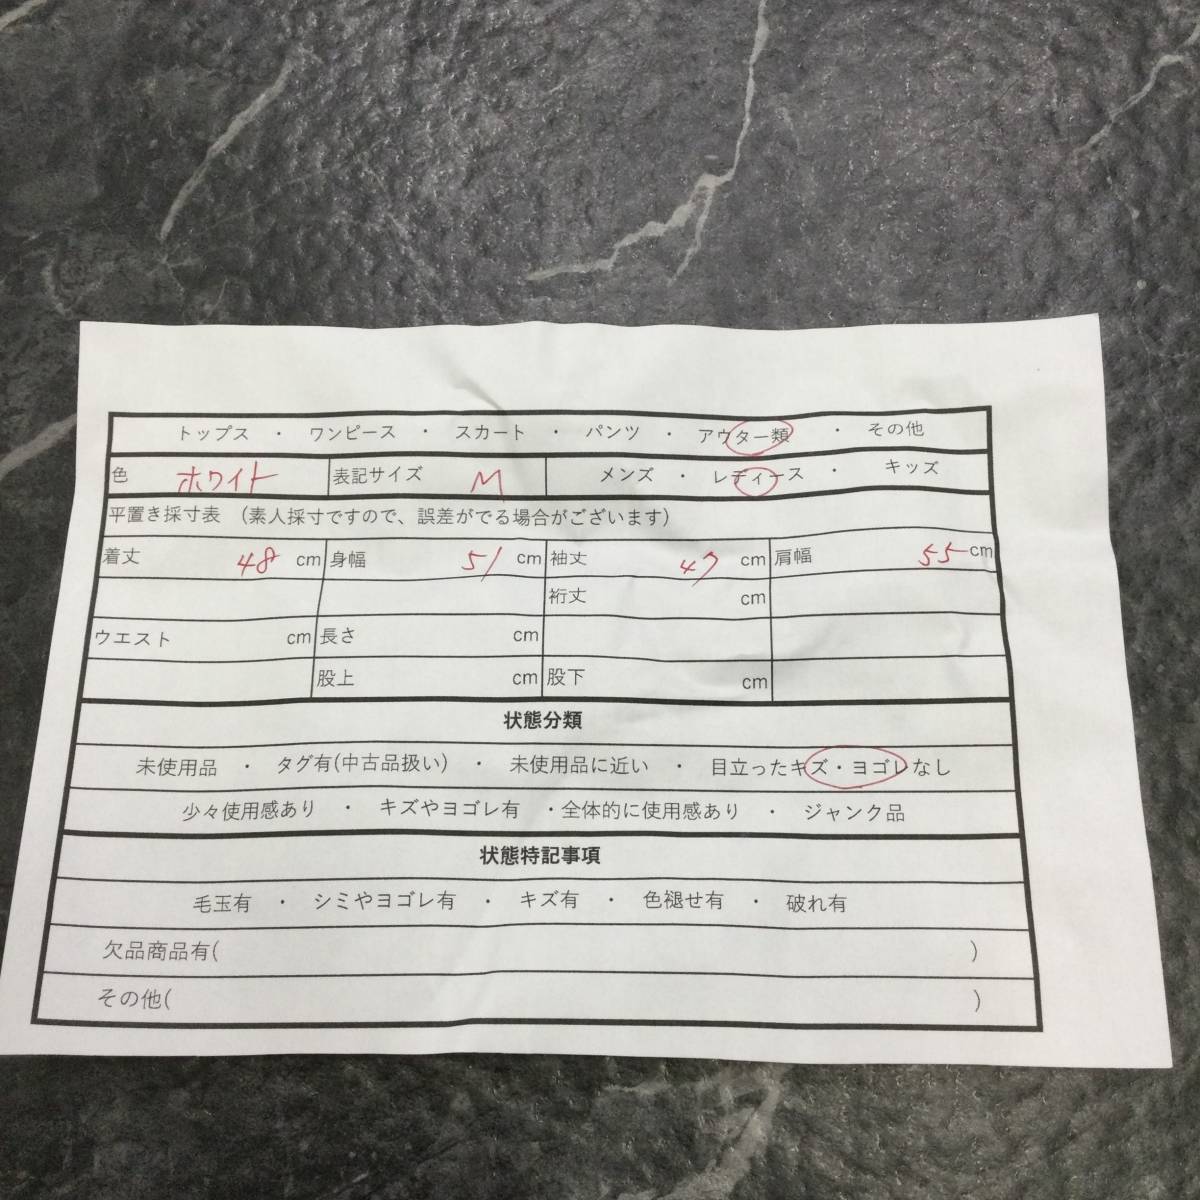 トップス ・ ワンピース ・ スカート ・ パンツ ・ アウター類 ・ その他
色 ホワイト 表記サイズ M メンズ ・ レディース ・ キッズ
平置き採寸表 （素人採寸ですので、誤差がでる場合がございます）
着丈 48 cm 身幅 51 cm 袖丈 47 cm 肩幅 55 cm
裄丈 cm
ウエスト cm 長さ cm
股上 cm 股下 cm
状態分類
未使用品 ・ タグ有(中古品扱い) ・ 未使用品に近い ・ 目立ったキズ・ヨゴレなし
少々使用感あり ・ キズやヨゴレ有 ・全体的に使用感あり ・ ジャンク品
状態特記事項
毛玉有 ・ シミやヨゴレ有 ・ キズ有 ・ 色褪せ有 ・ 破れ有
欠品商品有( )
その他( )